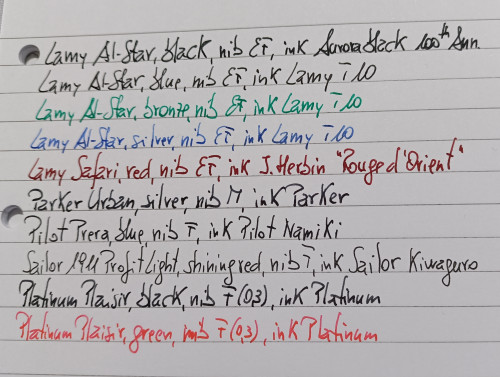 Lamy Al-Star, black, nib EF, ink Aurora black 100th Ann.
Lamy Al-Star, blue, nib EF, ink Lamy T10
Lamy Al-Star, bronze, nib EF, ink Lamy T10
Lamy Al-Star, silver, nib EF, ink Lamy T10
Lamy Safari, red, nib EF, ink J. Herbin "Rouge d'Orient"
Parker Urban, silver, nib M, ink Parker
Pilot Prera, blue nib F, ink Pilot Namiki
Sailor 1911 Profit Light, shining red, nib F, ink Sailor Kiwaguro
Platinum Plaisir, black, nib F (0,3), ink Platinum
Platinum Plaisir, green, nib F (0,3), ink Platinum